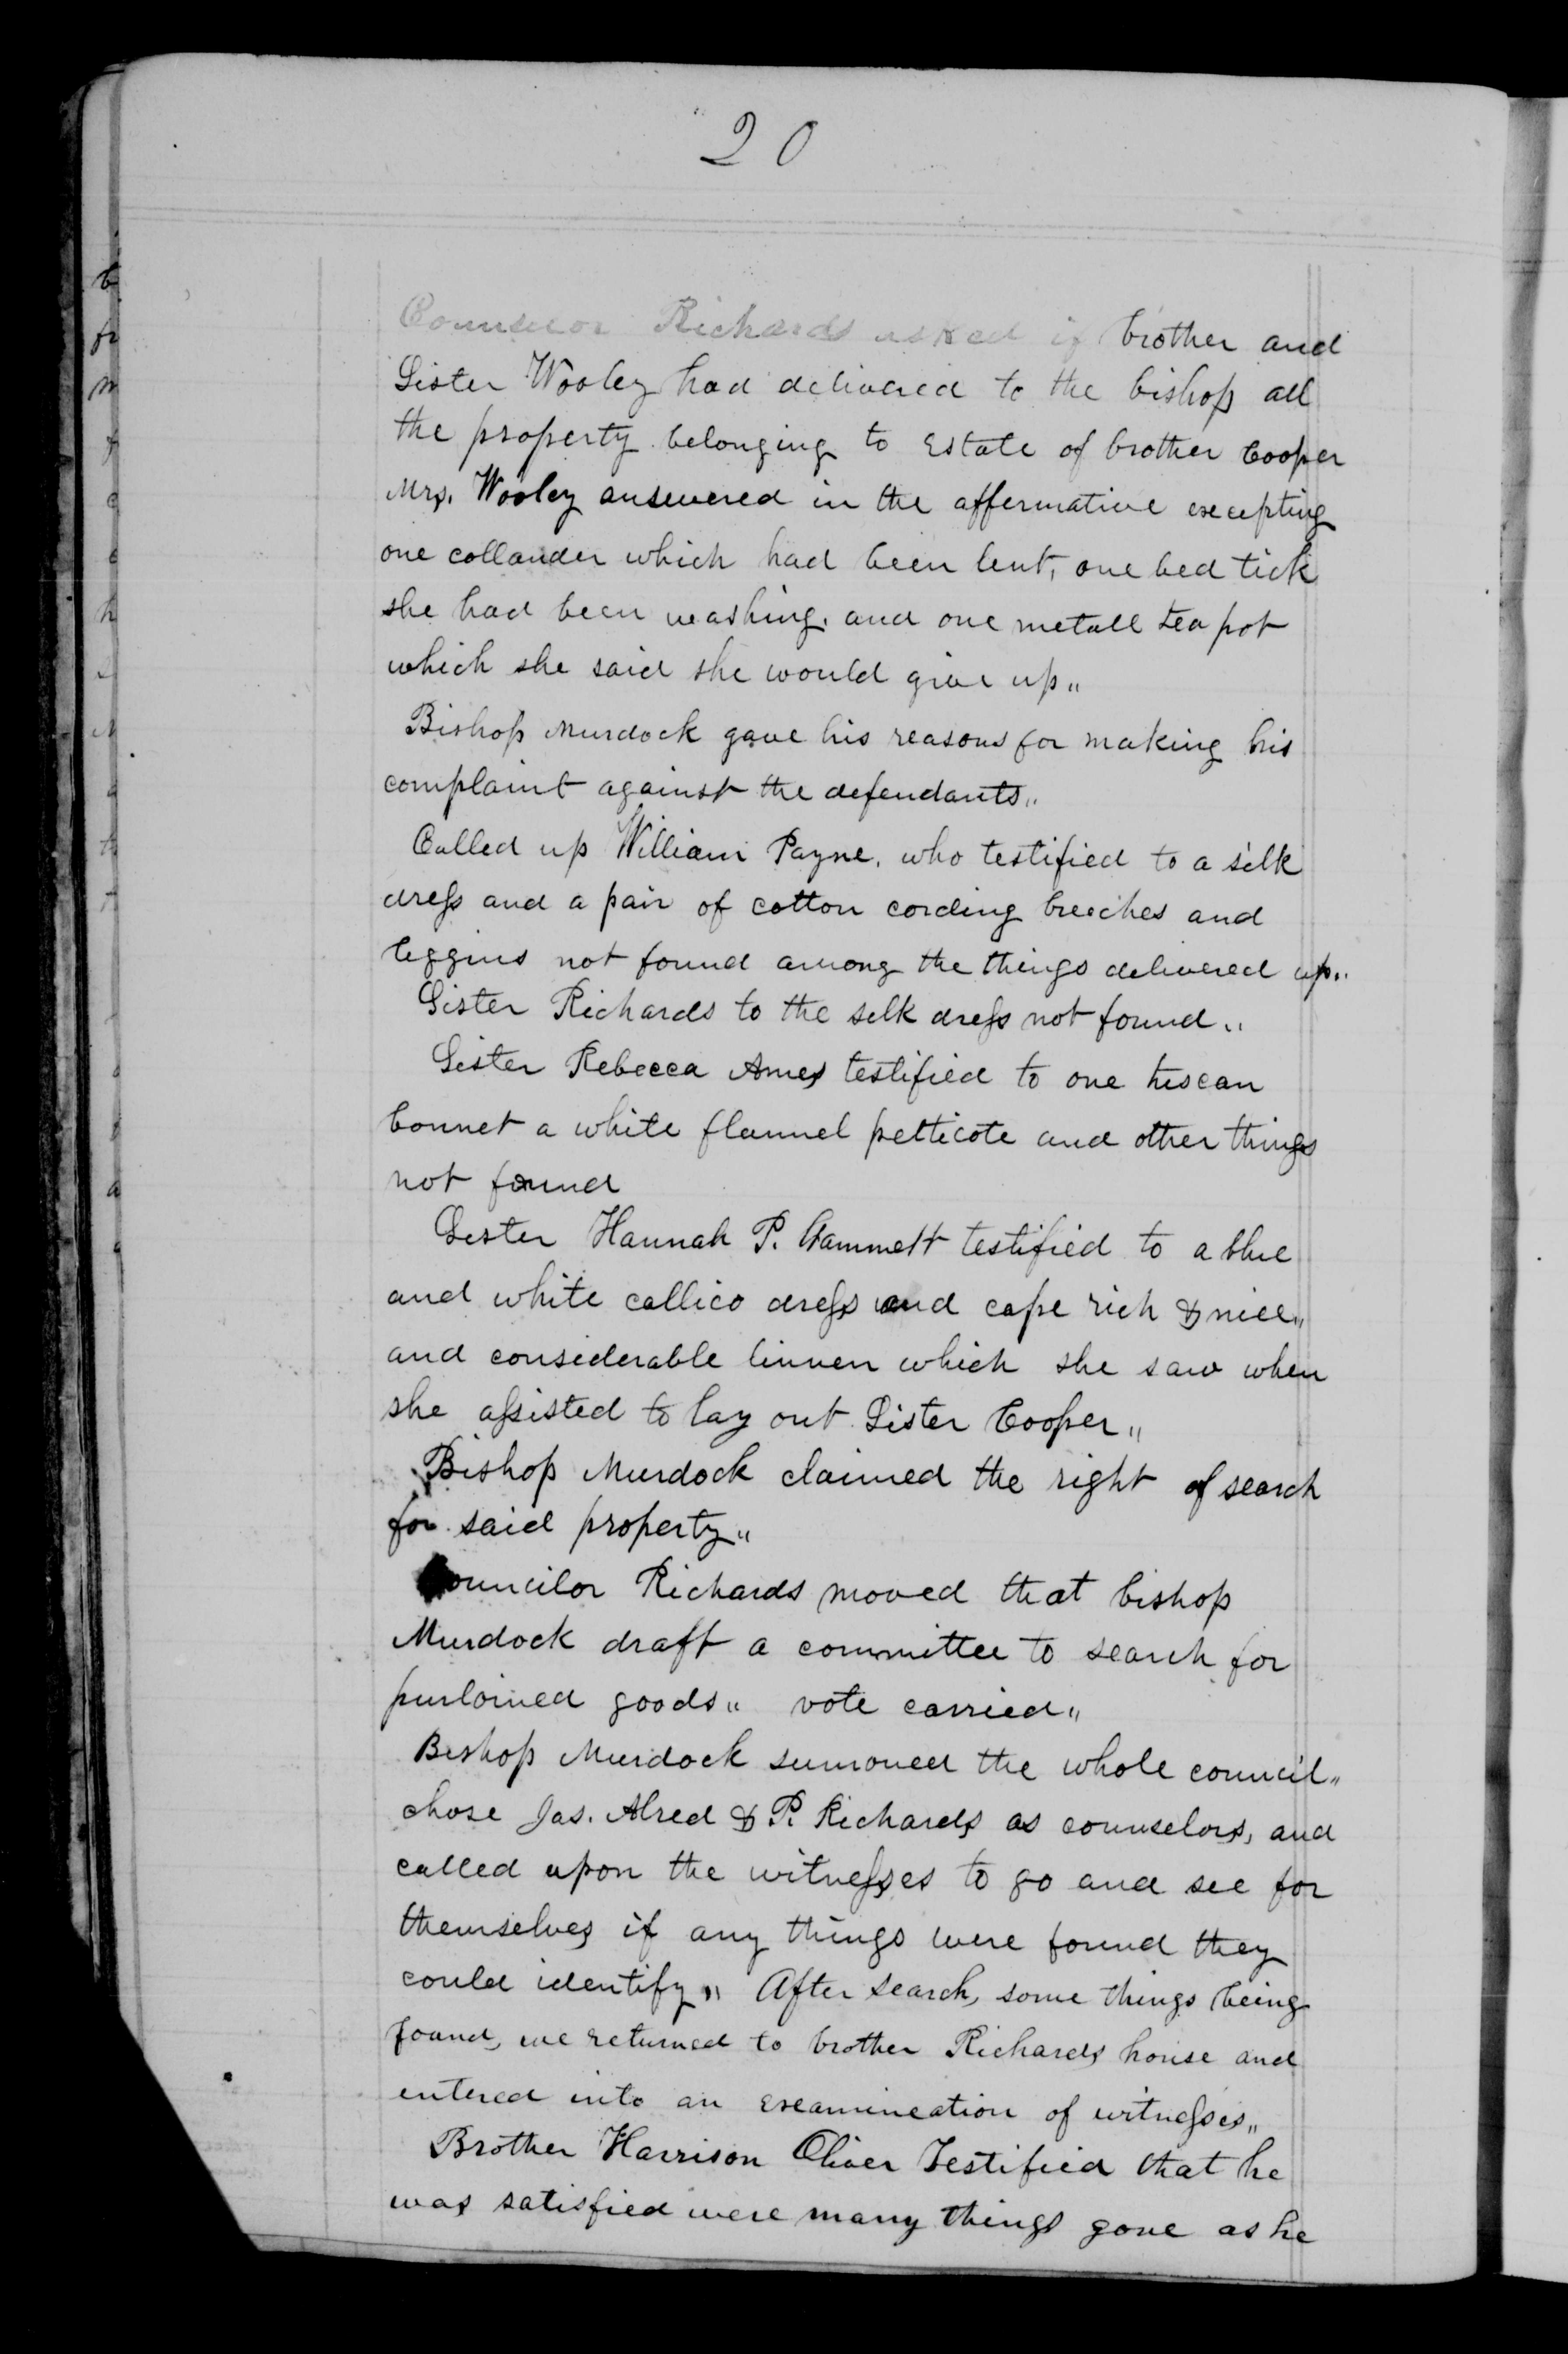 20
Counselor Richards asked if brother and
Sister Wooley had delivered to the bishop all
the property belonging to Estate of brother Cooper
Mrs. Wooley answered in the affermative excepting
one collander which had been lent, one bed tick
she had been washing, and one metall tea pot
which she said she would give up"
Bishop Murdock gave his reasons for making his
complaint against the defendants"
Called up William Payne, who testified to a silk
dress and a pair of cotton cording breeches and
leggins not found among the things delivered up"
Sister Richards to the silk dress not found"
Sister Rebecca Ames testified to one tuscan
bonnet a white flannel petticote and other things
not found
Sister Hannah P. Gammett testified to a blue
and white callico dress and cape rich & nice"
and considerable linnen which she saw when
she assisted to lay out Sister Cooper"
Bishop Murdock claimed the right of search
for said property"
Councilor Richards moved that bishop
Murdock draft a committee to search for
purloined goods" vote carried"
Bishop Murdock sumoned the whole council"
chose Jas. Alred & P. Richards as counselors, and
called upon the witnesses to go and see for
themselves if any things were found they
could identify" After search, some things being
found, we returned to brother Richards house and
entered into an examineation of witnesses"
Brother Harrison Oliver Testified that he
was satisfied were many things gone as he